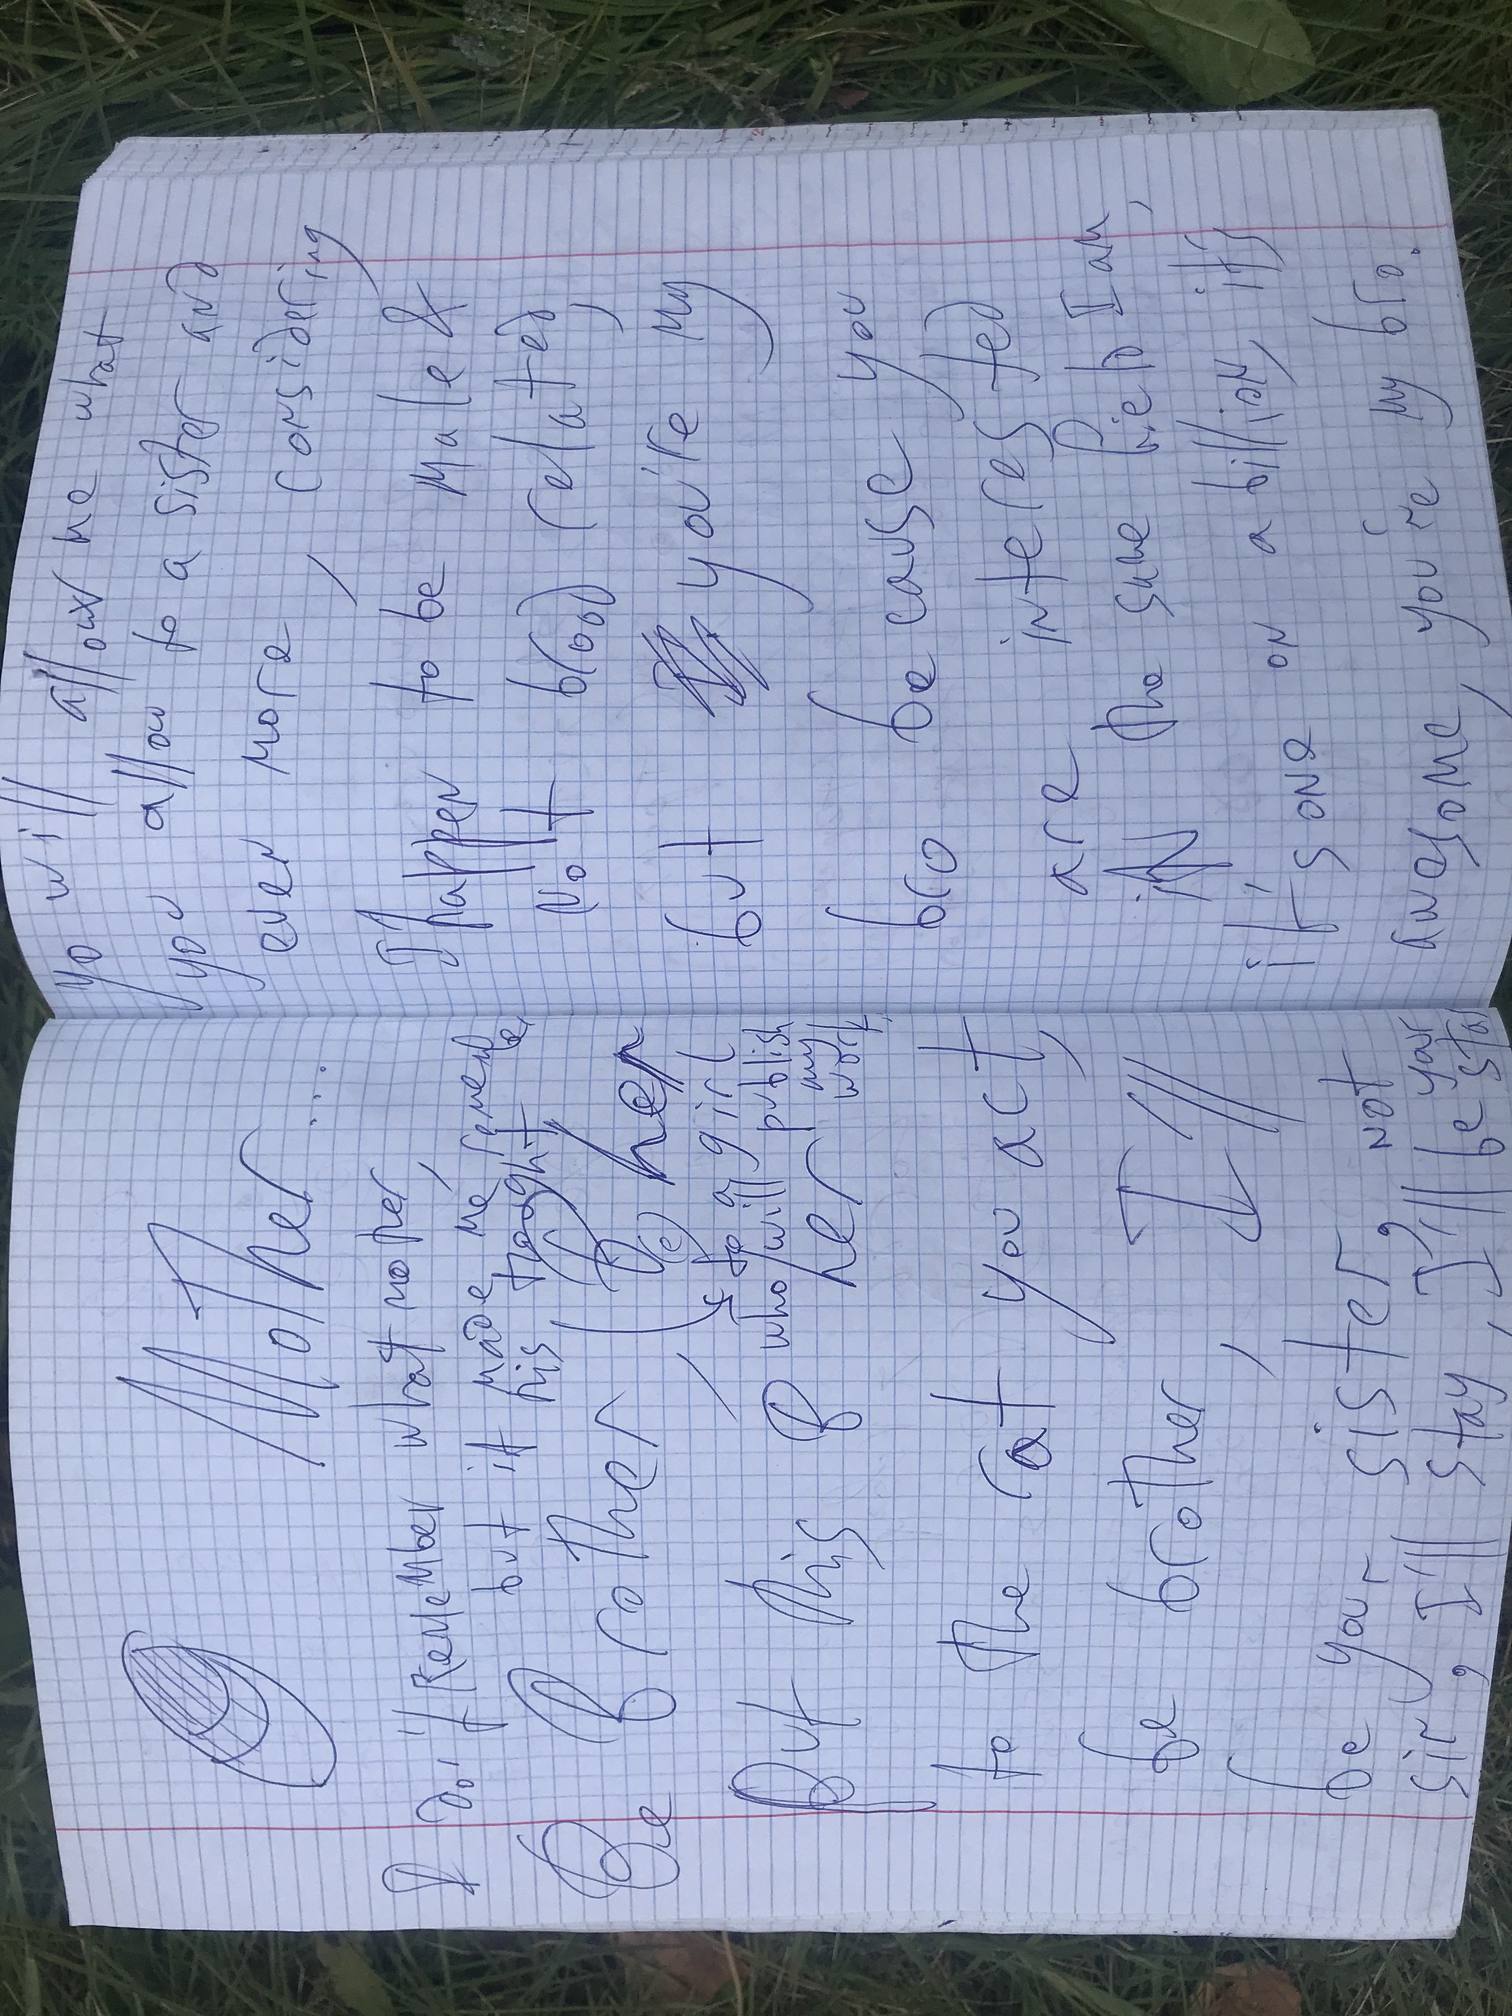 Mother...
I don't remember what mother,
but it made me remember
this thought
Be Brother, (Be) her
to a girl
who will publish
my
work,
But this B her
to the rat you act,
be brother, I'll
be your sister, not
sir, I'll stay, I'll be your star
yo will allow me what
you allow to a sister and
even more, considering
I happen to be male &
not blood related,
but you're my
bro because you
are interested
in the same field I am,
it's one on a billion, it's
awesome, you're my bro.